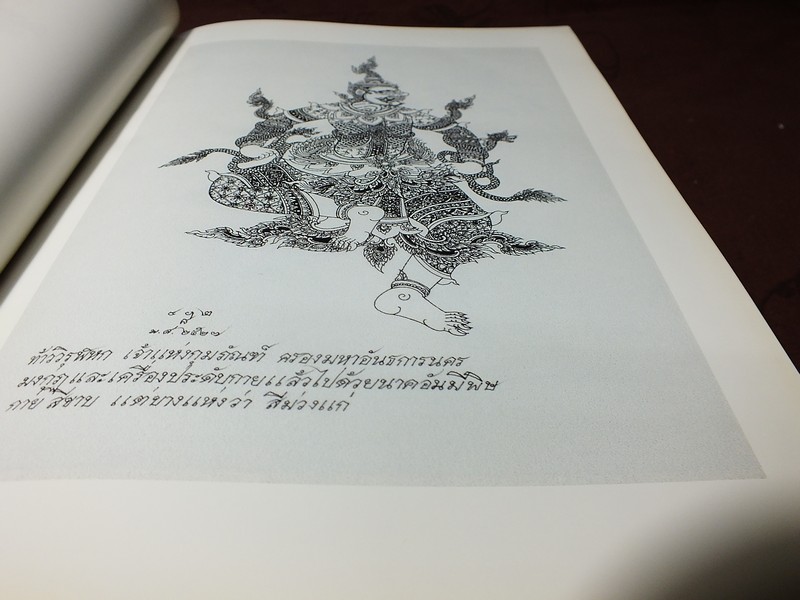 พ.ศ. ๒๕๒๗
ท้าววิรุฬหก เจ้าแห่งกุมภัณฑ์ ครองมหาอันธการนคร
มงกุฎและเครื่องประดับกายแล้วไปด้วยนาคอันมีพิษ
กาย สีขาบ แต่บางแห่งว่า สีม่วงแก่